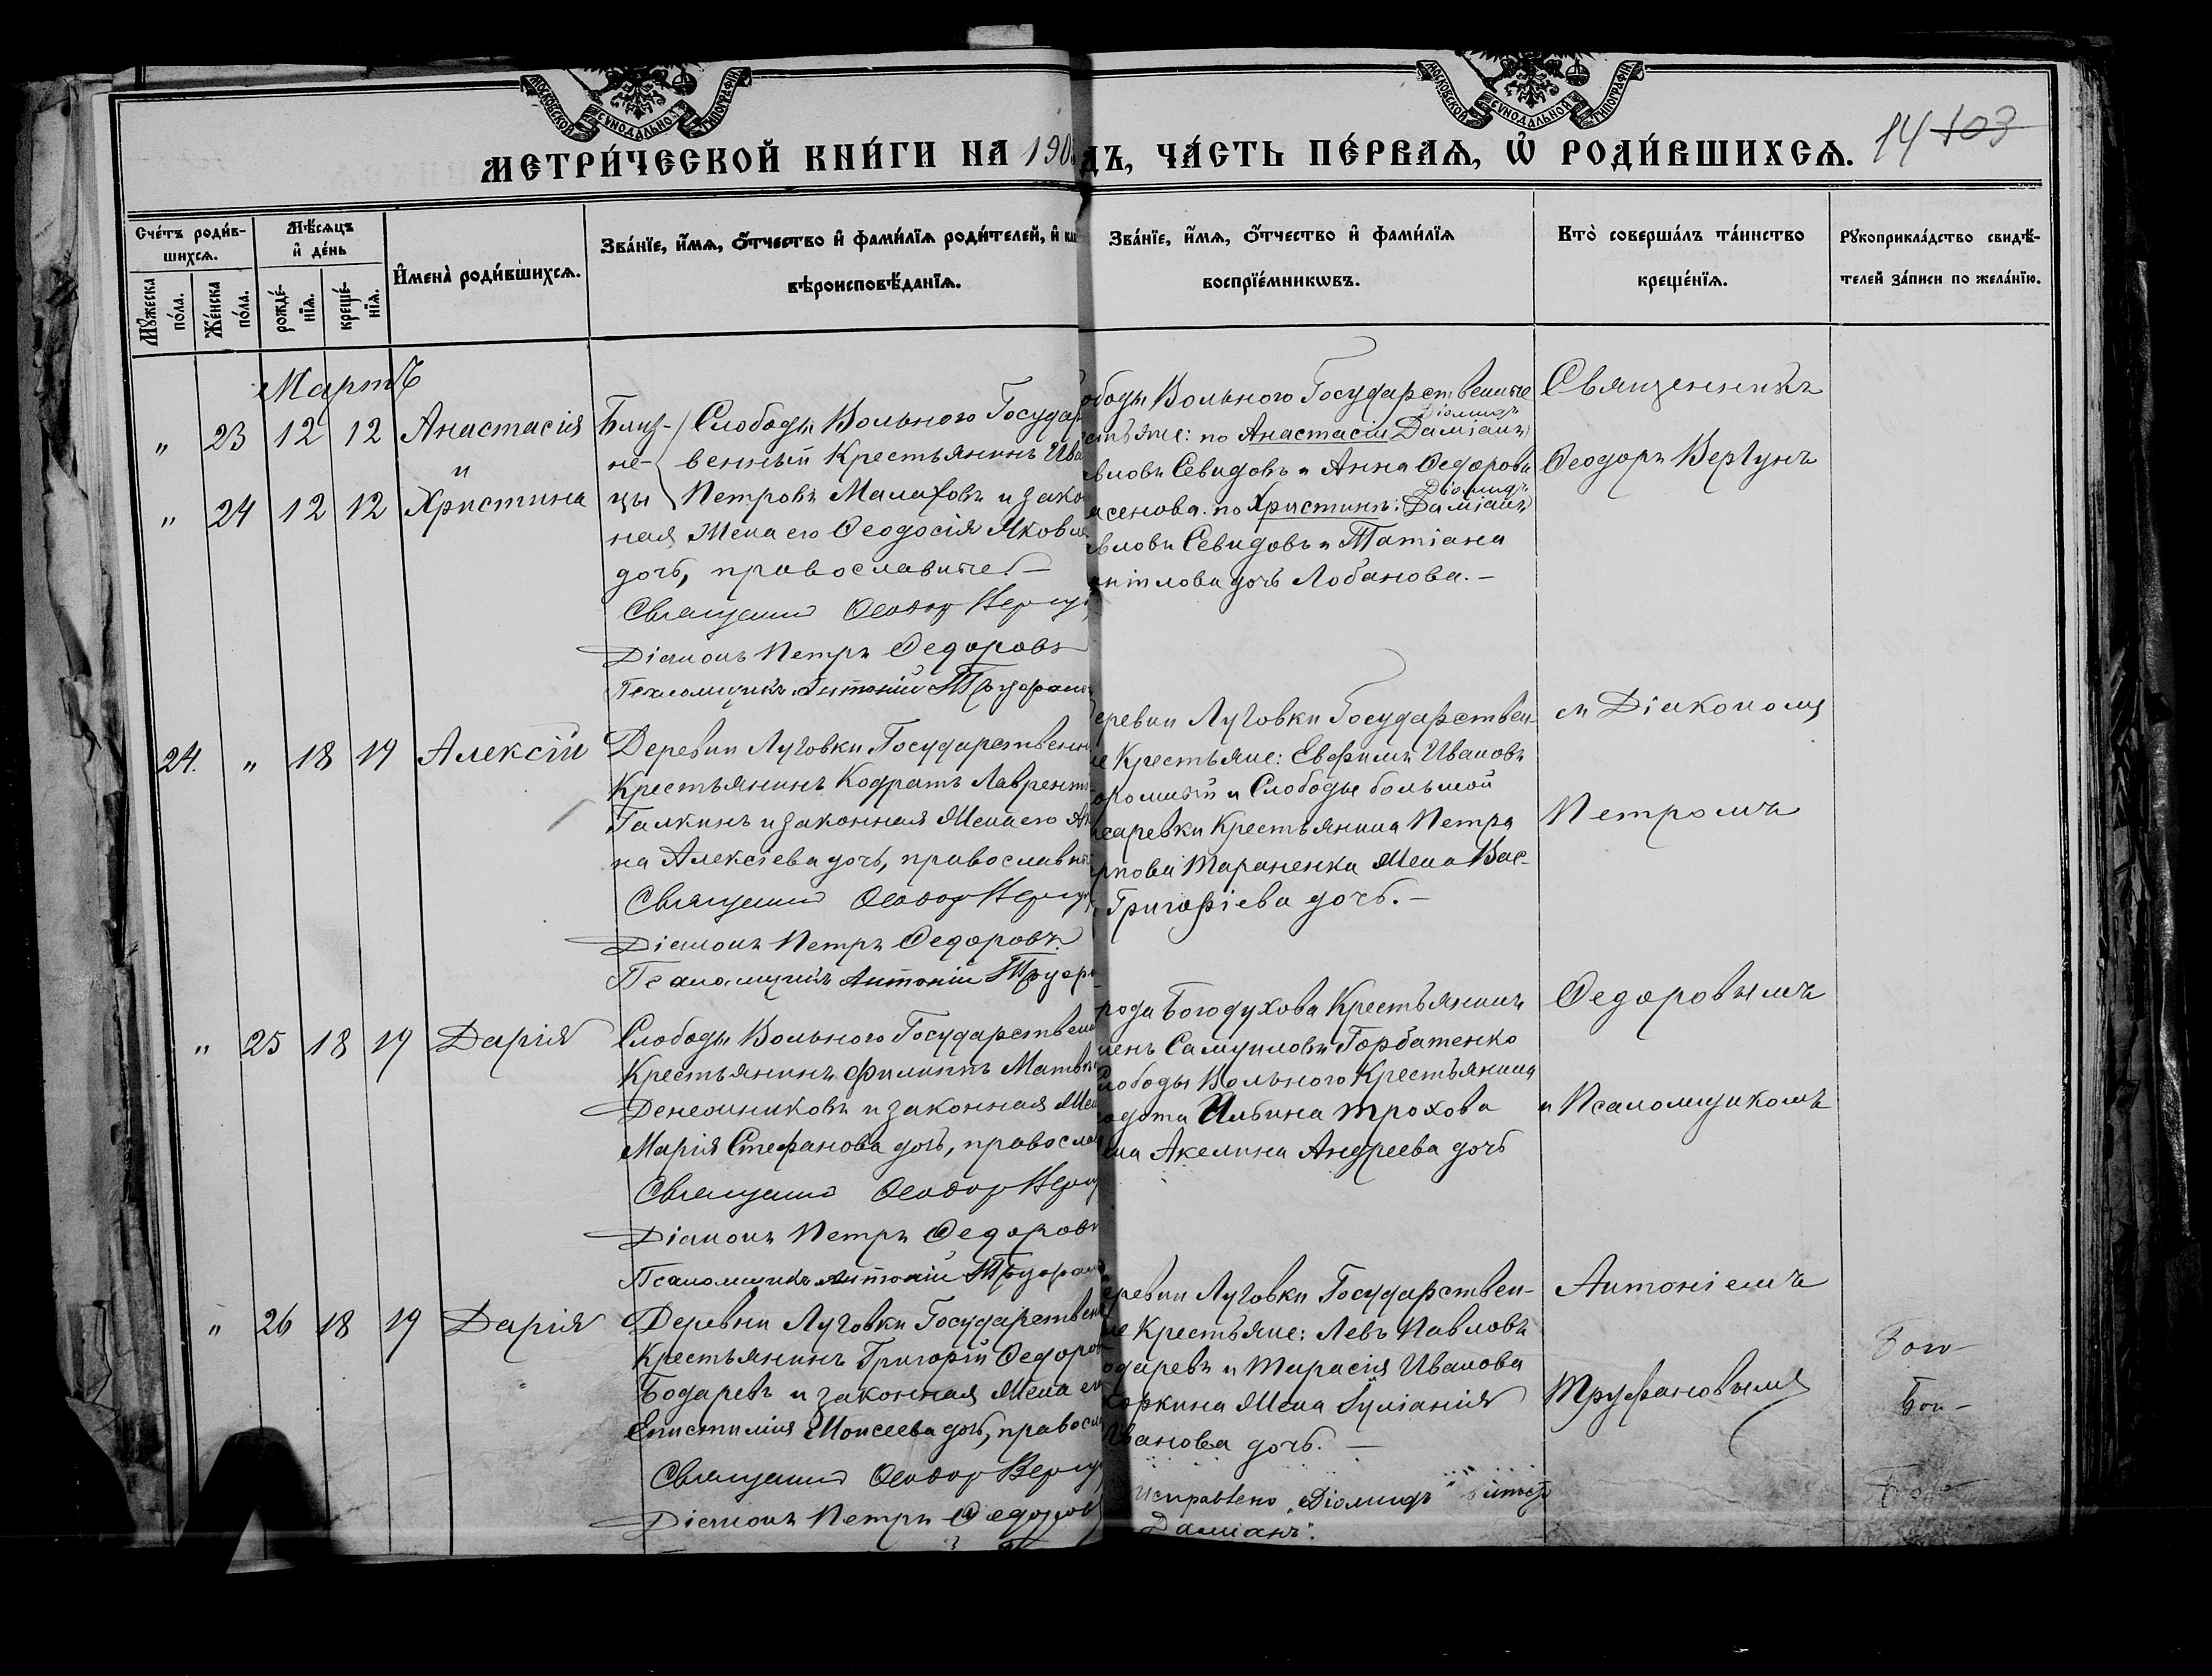 МОСКОВСКОЙ СѴНОДАЛЬНОЙ ТИПОГРАФІИ
МОСКОВСКОЙ СѴНОДАЛЬНОЙ ТИПОГРАФІИ
МЕТРИ́ЧЕСКОЙ КНИ́ГИ НА 190
ДЪ, ЧА́СТЬ ПЕ́РВАѦ, Ѡ҆ РОДИ́ВШИХСѦ. 14 103
Сче́тъ роди́в-
шихсѧ.
Мꙋ́жеска по́ла.
Же́нска по́ла.
Мѣ́сѧцъ
и҆ де́нь
рожде́-нїѧ.
креще́-нїѧ.
И҆мена̀ роди́вшихсѧ.
Зва́нїе, и҆́мѧ, ѻ҆́тчество и҆ фами́лїѧ роди́телей, и҆ как
вѣроисповѣ́данїѧ.
Зва́нїе, и҆́мѧ, ѻ҆́тчество и҆ фами́лїѧ
воспрїе́мникѡвъ.
Кто̀ соверша́лъ та́инство
креще́нїѧ.
Рꙋкоприкла́дство свидѣ́-
телей за́писи по жела́нїю.
Мартъ
„ 23 12 12 Анастасія
и
„ 24 12 12 Христина
Близ- Слободы Вольного Государ
не- венный Крестьянинъ Ива
цы Петровъ Малаховъ и зако
ная Жена его Ѳеодосія Яковле
дочь, православные. —
Священник Ѳеодор Вергун
Діаконъ Петръ Ѳедоровъ
Псаломщикъ Антоній Труфанов
ободы Вольного Государственные
Діомидъ
стьяне: по Анастасіи Даміанъ
вловъ Севидовъ и Анна Ѳедорова
Діомидъ
асенова. по Христинѣ: Даміанъ
вловъ Севидовъ и Татіана
дочь Лобанова. —
Священникъ
Ѳеодоръ Вергунъ
24. „ 18 19 Алексій
Деревни Луговки Государственн
Крестьянинъ Кодратъ Лавренті
Галкинъ и законная Жена его Ан
на Алексіева дочь, православны
Священник Ѳеодор Вергун
Діаконъ Петръ Ѳедоровъ
Псаломщикъ Антоній Труфан
еревни Луговки Государствен-
е Крестьяне: Евфимъ Ивановъ
и Слободы большой
саревки Крестьянина Петра
рпова Тараненка Жена Вас-
Григоріева дочь. —
съ Діакономъ
Петромъ
„ 25 18 19 Дарія
Слободы Вольного Государствен
Крестьянинъ Филиппъ Матвѣе
Денежниковъ и законная Жен
Марія Стефанова дочь, правосла
Священник Ѳеодор Вергун
Діаконъ Петръ Ѳедоровъ
Псаломщикъ Антоній Труфанов
рода Богодухова Крестьянинъ
менъ Самуиловъ Горбатенко
лободы Вольного Крестьянина
одота Ильина Трохова
ена Акелина Андреева дочь
Ѳедоровымъ
и Псаломщикомъ
„ 26 18 19 Дарія
Деревни Луговки Государствен
Крестьянинъ Григорій Ѳедоров
Бодаревъ и законная Жена ег
Епистимія Моисеева дочь, правосла
Священник Ѳеодор Вергун
Діаконъ Петръ Ѳедоров
еревни Луговки Государствен-
е Крестьяне: Левъ Павловъ
одаревъ и Тарасія Иванова
Коркина Жена Іуліанія
Иванова дочь. —
Исправлено „Діомидъ“ вмѣсто
„Даміанъ“.
Антоніемъ
Труфановымъ